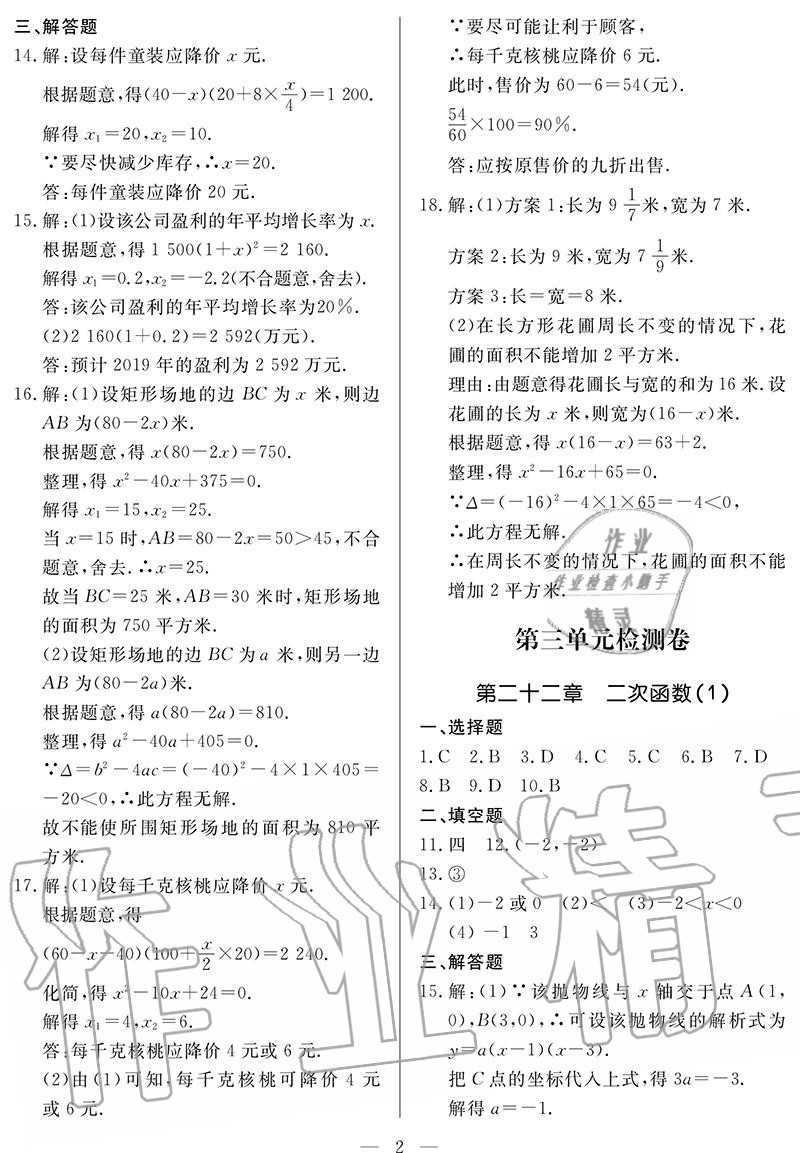 三、解答题
14.解:设每件童装应降价 x 元.
根据题意,得(40-x)(20+8×x/4)=1 200.
解得 x₁=20,x₂=10.
∵要尽快减少库存,∴x=20.
答:每件童装应降价 20 元.
15.解:(1)设该公司盈利的年平均增长率为 x.
根据题意,得 1 500(1+x)²=2 160.
解得 x₁=0.2,x₂=-2.2(不合题意,舍去).
答:该公司盈利的年平均增长率为20%.
(2)2 160(1+0.2)=2 592(万元).
答:预计 2019 年的盈利为 2 592 万元.
16.解:(1)设矩形场地的边 BC 为 x 米,则边
AB 为(80-2x)米.
根据题意,得 x(80-2x)=750.
整理,得 x²-40x+375=0.
解得 x₁=15,x₂=25.
当 x=15 时,AB=80-2x=50>45,不合
题意,舍去.∴x=25.
故当 BC=25 米,AB=30 米时,矩形场地
的面积为 750 平方米.
(2)设矩形场地的边 BC 为 a 米,则另一边
AB 为(80-2a)米.
根据题意,得 a(80-2a)=810.
整理,得 a²-40a+405=0.
∵Δ=b²-4ac=(-40)²-4×1×405=
-20<0,∴此方程无解.
故不能使所围矩形场地的面积为 810 平
方米.
17.解:(1)设每千克核桃应降价 x 元.
根据题意,得
(60-x-40)(100+x/2×20)=2 240.
化简,得 x²-10x+24=0.
解得 x₁=4,x₂=6.
答:每千克核桃应降价 4 元或 6 元.
(2)由(1)可知,每千克核桃可降价 4 元
或 6 元.
∵要尽可能让利于顾客,
∴每千克核桃应降价 6 元.
此时,售价为 60-6=54(元).
54/60×100=90%.
答:应按原售价的九折出售.
18.解:(1)方案 1:长为 9 1/7 米,宽为 7 米.
方案 2:长为 9 米,宽为 7 1/9 米.
方案 3:长=宽=8 米.
(2)在长方形花圃周长不变的情况下,花
圃的面积不能增加 2 平方米.
理由:由题意得花圃长与宽的和为 16 米.设
花圃的长为 x 米,则宽为(16-x)米.
根据题意,得 x(16-x)=63+2.
整理,得 x²-16x+65=0.
∵Δ=(-16)²-4×1×65=-4<0,
∴此方程无解.
∴在周长不变的情况下,花圃的面积不能
增加 2 平方米.
作业
作业检查小助手
精灵
第三单元检测卷
第二十二章 二次函数(1)
一、选择题
1.C 2.B 3.D 4.C 5.C 6.B 7.D
8.B 9.D 10.B
二、填空题
11.四 12.(-2,-2)
13.③
14.(1)-2 或 0 (2)< (3)-2<x<0
(4) -1 3
三、解答题
15.解:(1)∵该抛物线与 x 轴交于点 A(1,
0),B(3,0),∴可设该抛物线的解析式为
y=a(x-1)(x-3).
把 C 点的坐标代入上式,得 3a=-3.
解得 a=-1.
作业精
— 2 —